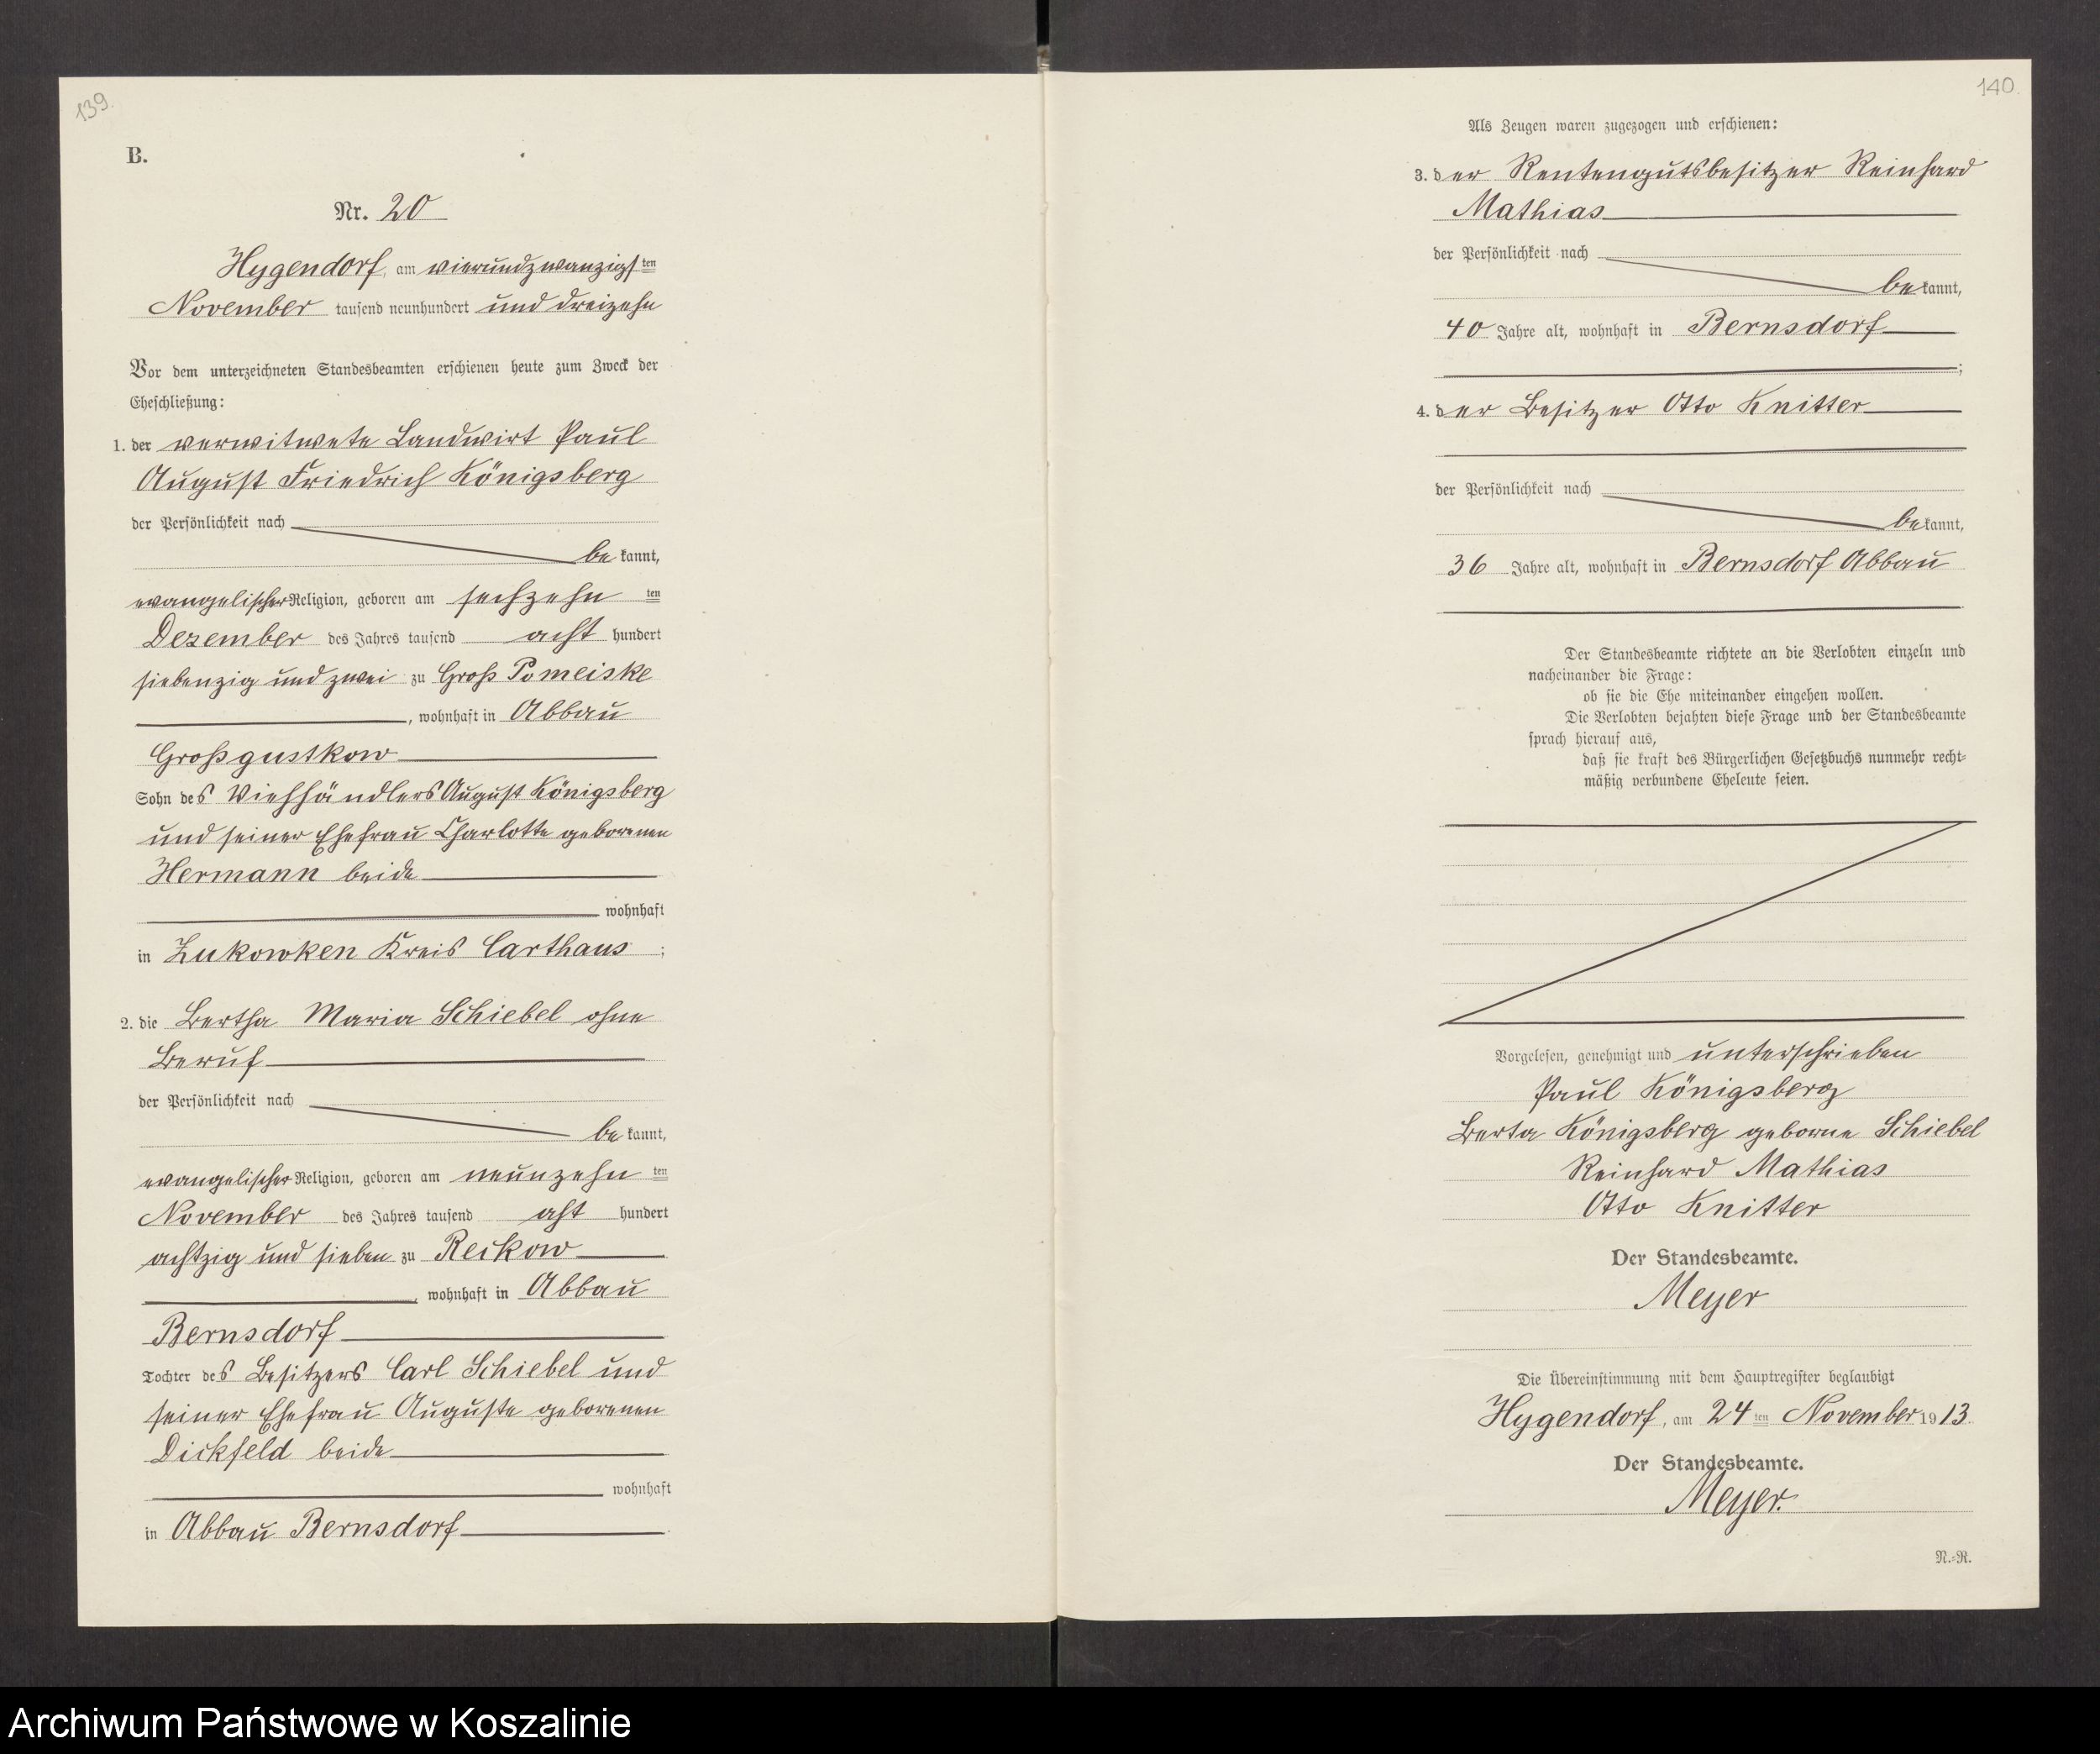 139.
B.
Nr. 20
Hygendorf, am vierundzwanzigsten
November tausend neunhundert und dreizehn
Vor dem unterzeichneten Standesbeamten erschienen heute zum Zweck der
Eheschließung:
1. der verwitwete Landwirt Paul
August Friedrich Königsberg
der Persönlichkeit nach
be kannt,
evangelischer Religion, geboren am sechzehn ten
Dezember des Jahres tausend acht hundert
siebenzig und zwei zu Groß Pomeiske
, wohnhaft in Abbau
Großgustkow
Sohn des Viehhändlers August Königsberg
und seiner Ehefrau Charlotte geborenen
Hermann beide
wohnhaft
in Zukowken Kreis Carthaus ;
2. die Bertha Maria Schiebel ohne
Beruf
der Persönlichkeit nach
be kannt,
evangelischer Religion, geboren am neunzehn ten
November des Jahres tausend acht hundert
achtzig und sieben zu Reckow
, wohnhaft in Abbau
Bernsdorf
Tochter des Besitzers Carl Schiebel und
seiner Ehefrau Auguste geborenen
Dickfeld beide
wohnhaft
in Abbau Bernsdorf
140.
Als Zeugen waren zugezogen und erschienen:
3. der Rentengutsbesitzer Reinhard
Mathias
der Persönlichkeit nach
be kannt,
40 Jahre alt, wohnhaft in Bernsdorf
;
4. der Besitzer Otto Knitter
der Persönlichkeit nach
be kannt,
36 Jahre alt, wohnhaft in Bernsdorf Abbau
Der Standesbeamte richtete an die Verlobten einzeln und
nacheinander die Frage:
ob sie die Ehe miteinander eingehen wollen.
Die Verlobten bejahten diese Frage und der Standesbeamte
sprach hierauf aus,
daß sie kraft des Bürgerlichen Gesetzbuchs nunmehr recht-
mäßig verbundene Eheleute seien.
Vorgelesen, genehmigt und unterschrieben
Paul Königsberg
Berta Königsberg geborne Schiebel
Reinhard Mathias
Otto Knitter
Der Standesbeamte.
Meyer
Die Übereinstimmung mit dem Hauptregister beglaubigt
Hygendorf, am 24 ten November 1913
Der Standesbeamte.
Meyer.
N.-R.
Archiwum Państwowe w Koszalinie